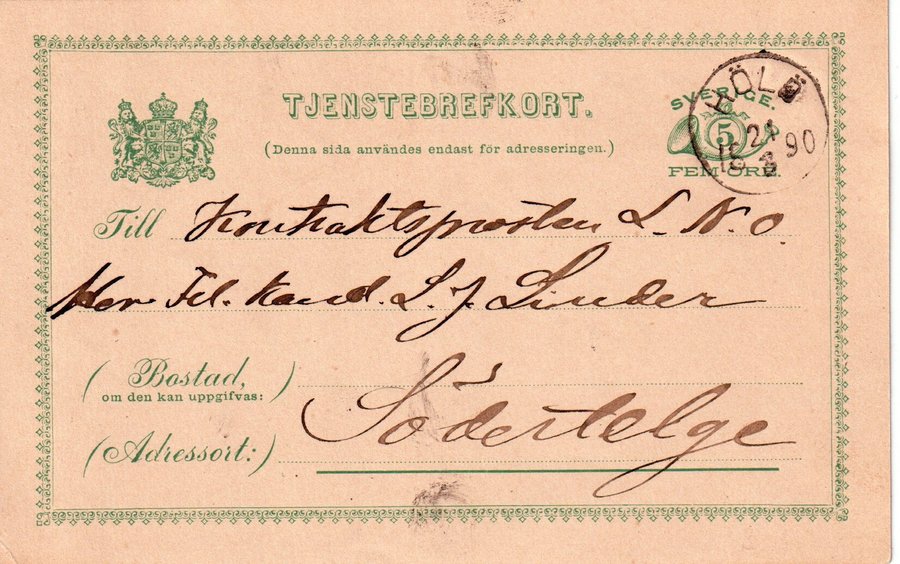 TJENSTEBREFKORT.
(Denna sida användes endast för adresseringen.)
SVERIGE.
5
FEM ÖRE.
HÖLÖ
21
90
Till Kontraktsprosten L. N. O.
Herr Fil. Kand. L. J. Linder
(Bostad,)
om den kan uppgifvas:
(Adressort:) Södertelge